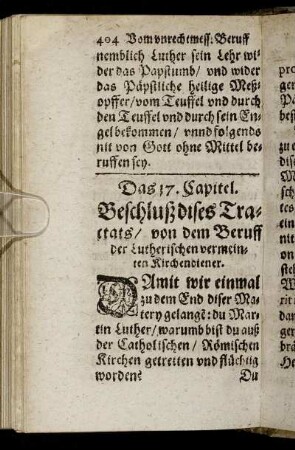 404 Vom vnrechtmess. Beruff
nemblich Luther sein Lehr wi-
der das Papstumb/ vnd wider
das Päpstliche heilige Meß-
opffer/vom Teuffel vnd durch
den Teuffel vnd durch sein En-
gel bekommen/ vnnd folgends
nit von Gott ohne Mittel be-
ruffen sey.
Das 17. Capitel.
Beschluß dises Tra-
ctats/ von dem Beruff
der Lutherischen vermein-
ten Kirchendiener.
DAmit wir einmal
zu dem End diser Ma-
tery gelangẽ: du Mar-
tin Luther/ warumb bist du auß
der Catholischen/ Römischen
Kirchen getretten vnd flüchtig
worden? Du